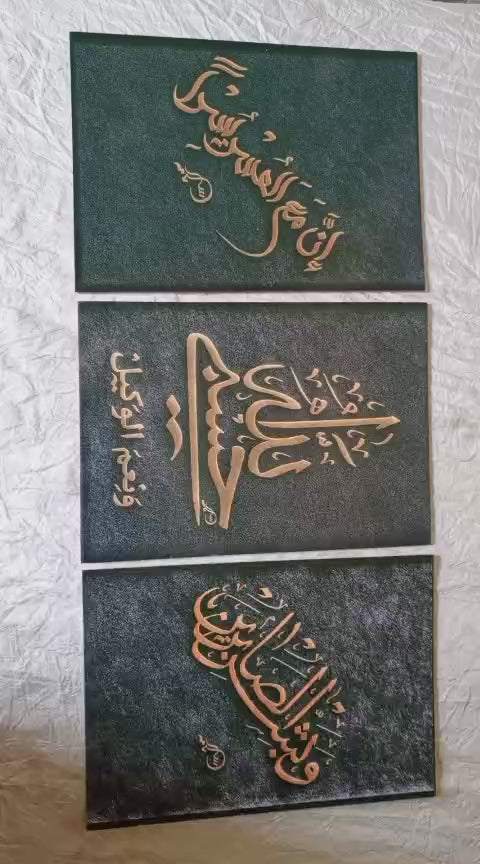 إنَّ مع العُسرِ يُسراً
حسبي الله
وَنِعمَ الوكيل
وبشر الصابرين